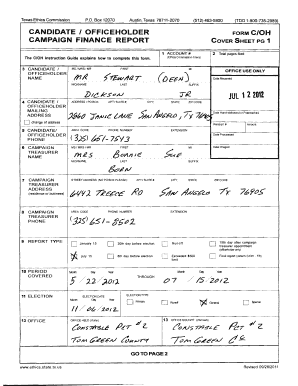 Texas Ethics Commission P.O. Box 12070 Austin, Texas 78711-2070 (512) 463-5800 (TDD 1-800-735-2989)
CANDIDATE / OFFICEHOLDER
CAMPAIGN FINANCE REPORT
FORM C/OH
COVER SHEET PG 1
The C/OH Instruction Guide explains how to complete this form.
1 ACCOUNT #
2 Total pages filed:
3 CANDIDATE / OFFICEHOLDER NAME
MS / MRS / MR FIRST MI
MR STEWART (DEEN)
NICKNAME LAST SUFFIX
DICKSON JR
OFFICE USE ONLY
Date Received
JUL 12 2012
4 CANDIDATE / OFFICEHOLDER MAILING ADDRESS
change of address
ADDRESS / PO BOX; APT / SUITE #; CITY; STATE; ZIP CODE
2868 JANIE LANE SAN ANGELO, TX
Date Hand-delivered or Postmarked
5 CANDIDATE/ OFFICEHOLDER PHONE
AREA CODE PHONE NUMBER EXTENSION
(325) 651-7543
Receipt # Amount
Date Processed
6 CAMPAIGN TREASURER NAME
MS / MRS / MR FIRST MI
MRS BONNIE SUE
NICKNAME LAST SUFFIX
BORN
Date Imaged
7 CAMPAIGN TREASURER ADDRESS
(residence or business)
STREET ADDRESS (NO PO BOX PLEASE); APT / SUITE #; CITY; STATE; ZIP CODE
6442 REECE RD SAN ANGELO TX 76905
8 CAMPAIGN TREASURER PHONE
AREA CODE PHONE NUMBER EXTENSION
(325) 651-8502
9 REPORT TYPE
January 15 30th day before election Runoff 15th day after campaign treasurer appointment (officeholder only)
X July 15 8th day before election Exceeded $500 limit Final report (Attach C/OH - FR)
10 PERIOD COVERED
Month Day Year THROUGH Month Day Year
5 / 22 / 2012 07 / 15 / 2012
11 ELECTION
ELECTION DATE
Month Day Year
11 / 06 / 2012
ELECTION TYPE
Primary Runoff X General Special
12 OFFICE
OFFICE HELD (if any)
CONSTABLE PCT #2
TOM GREEN COUNTY
13 OFFICE SOUGHT (if known)
CONSTABLE PCT #2
TOM GREEN CO
GO TO PAGE 2
www.ethics.state.tx.us Revised 09/28/2011